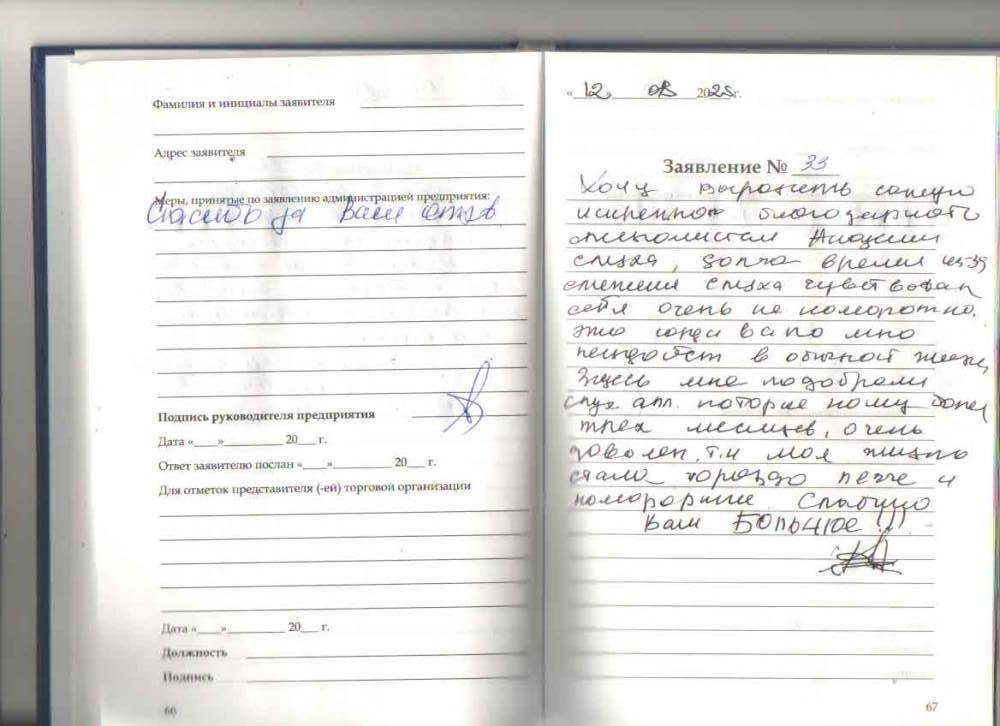 Фамилия и инициалы заявителя
Адрес заявителя
Меры, принятые по заявлению администрацией предприятия:
Спасибо за Ваш отзыв
Подпись руководителя предприятия
Дата «____»__________ 20___ г.
Ответ заявителю послан «____»__________ 20___ г.
Для отметок представителя (-ей) торговой организации
Дата «____»__________ 20___ г.
Должность
Подпись
66
«12» 08 2025г.
Заявление № 33
Хочу выразить
искренною благодарность
специалистам Академии
слуха, долго время из-за
снежения слуха чувствовал
себя очень не коморотно,
это когда
в обычной жизни,
Здесь мне подобрали
слух апп. которые ношу более
трех месяцев, очень
доволен, т.к моя жизнь
стало гораздо легче и
Спасибо
Вам БОЛЬШОЕ!!!
67